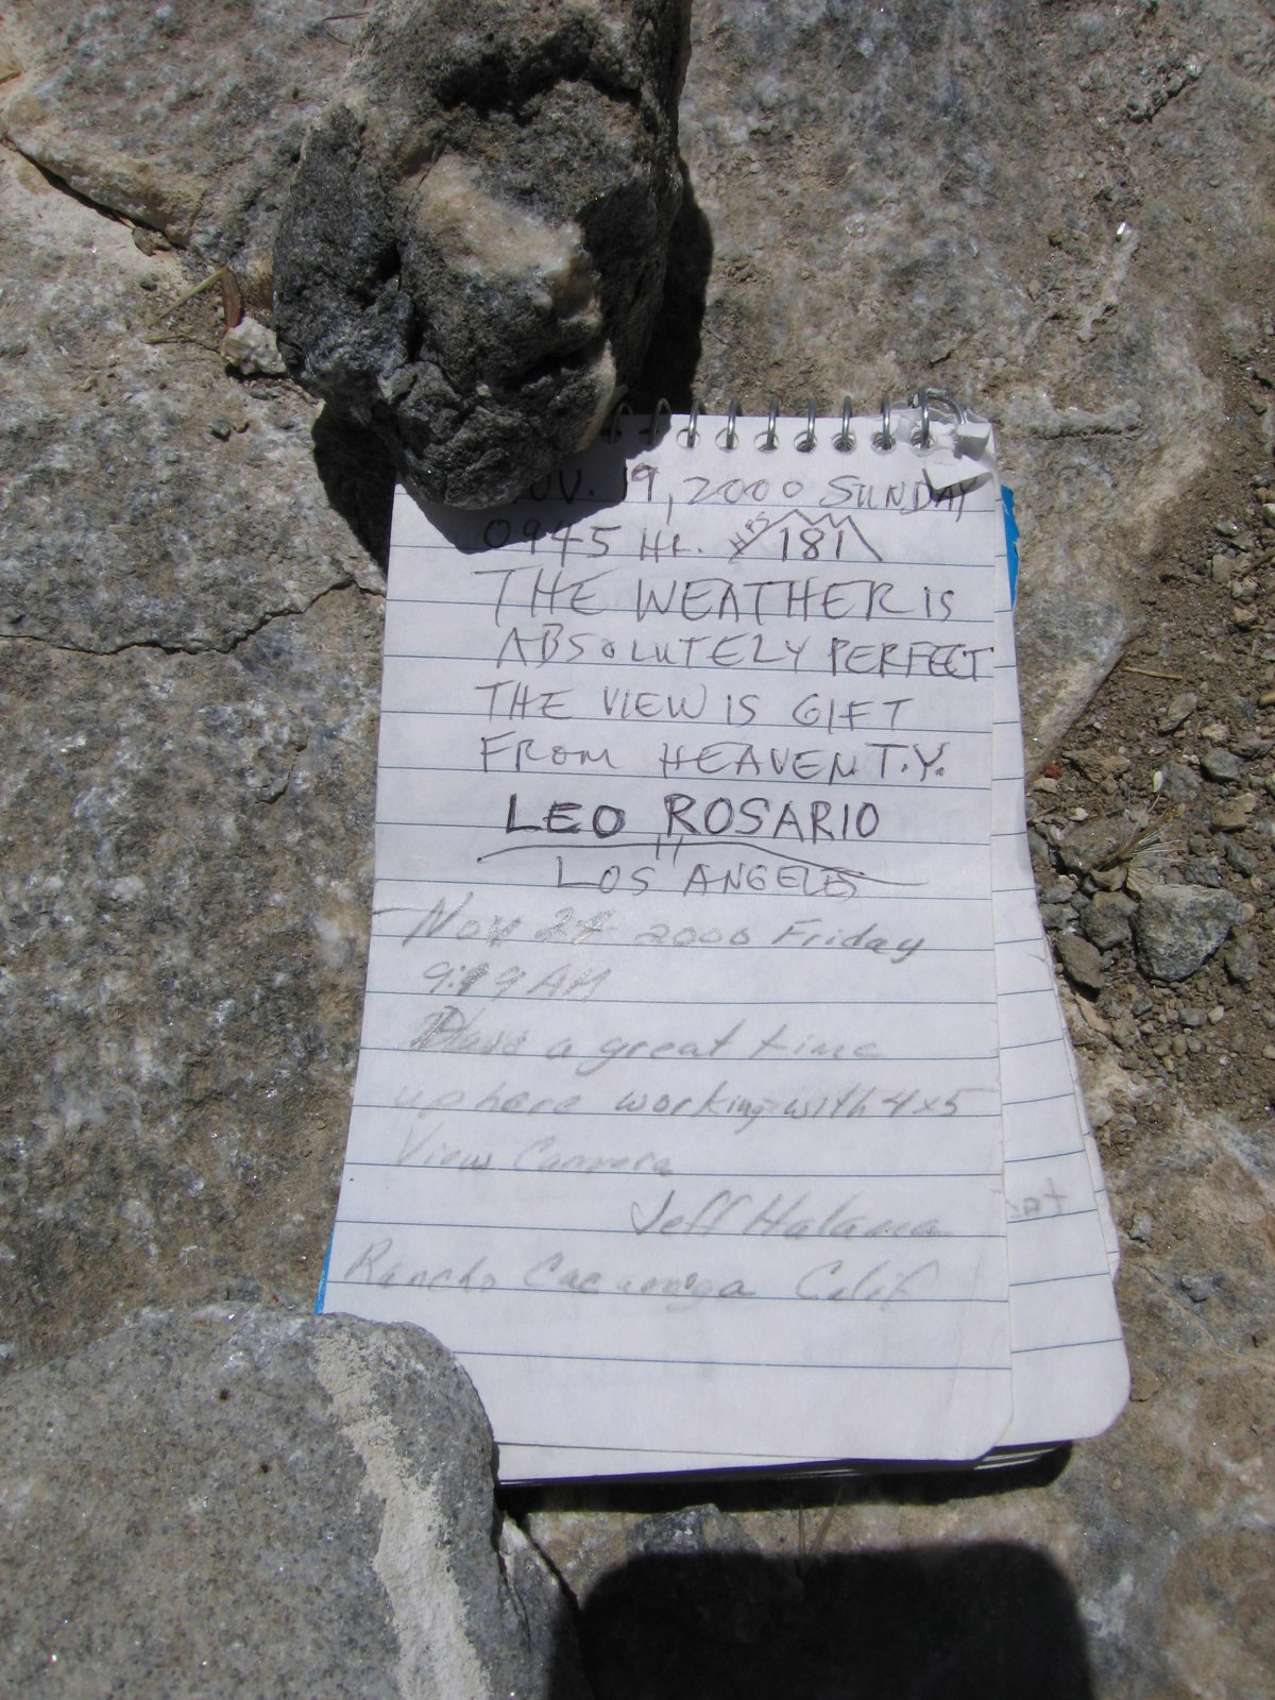 NOV. 19, 2000 SUNDAY
0945 Hr. HPS 181
THE WEATHER IS
ABSOLUTELY PERFECT
THE VIEW IS GIFT
FROM HEAVEN T.Y.
LEO ROSARIO
LOS ANGELES
Nov 2000 Friday
AM
a great time
up here working with 4x5
View Camera
Jeff Halama
Rancho Cucamonga Calif